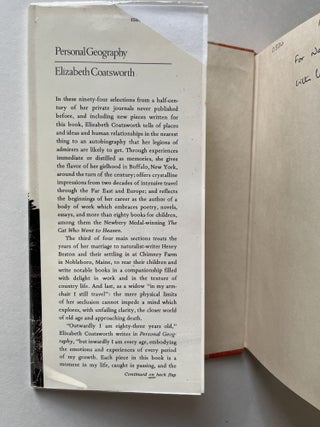 Personal Geography
Elizabeth Coatsworth
In these ninety-four selections from a half-cen-
tury of her private journals never published
before, and including new pieces written for
this book, Elizabeth Coatsworth tells of places
and ideas and human relationships in the nearest
thing to an autobiography that her legions of
admirers are likely to get. Through experiences
immediate or distilled as memories, she gives
the flavor of her girlhood in Buffalo, New York,
around the turn of the century; offers crystalline
impressions from two decades of intensive travel
through the Far East and Europe; and reflects
the beginnings of her career as the author of a
body of work which embraces poetry, novels,
essays, and more than eighty books for children,
among them the Newbery Medal-winning The
Cat Who Went to Heaven.
The third of four main sections treats the
years of her marriage to naturalist-writer Henry
Beston and their settling in at Chimney Farm
in Nobleboro, Maine, to rear their children and
write notable books in a companionship filled
with delight in work and in the texture of
country life. And last, as a widow "in my arm-
chair I still travel": the mere physical limits
of her seclusion cannot impede a mind which
explores, with unfailing clarity, the closer world
of old age and approaching death.
"Outwardly I am eighty-three years old,"
Elizabeth Coatsworth writes in Personal Geog-
raphy, "but inwardly I am every age, embodying
the emotions and experiences of every period
of my growth. Each piece in this book is a
moment in my life, caught in passing, and the
Continued on back flap
For
with